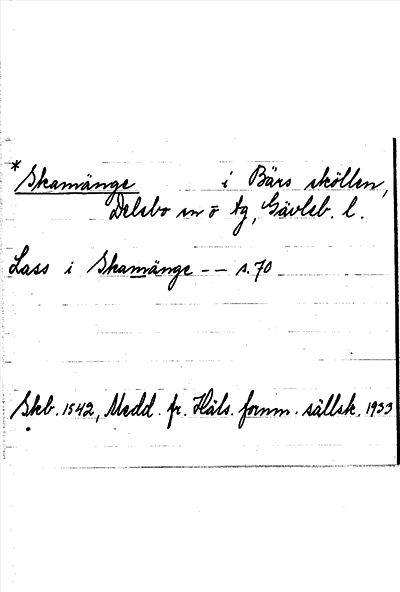 *Skamänge i Bärs sköllen,
Delsbo sn o tg, Gävleb. l.
Lass i Skamänge -- s.70
Skb. 1542, Medd. fr. Häls. fornm. sällsk. 1933